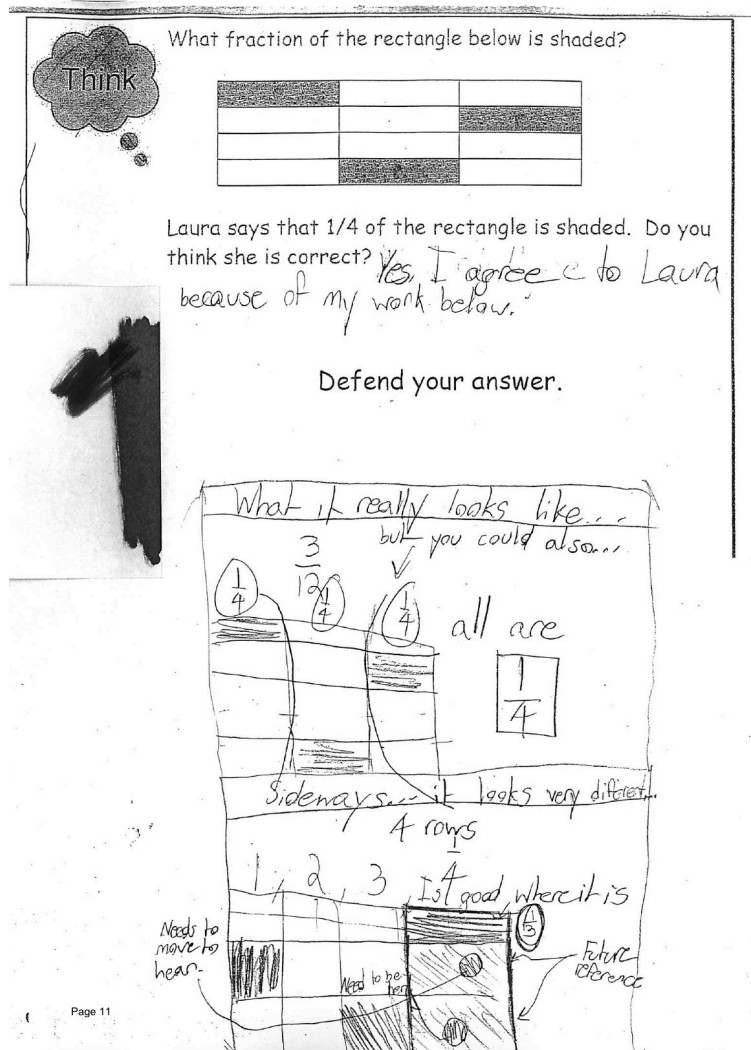 What fraction of the rectangle below is shaded?
Think
Laura says that 1/4 of the rectangle is shaded. Do you
think she is correct? Yes, I agree to Laura
because of my work below.
Defend your answer.
What it really looks like...
but you could also...
3/12
1/4 1/4 1/4 all are
1/4
Sideways... it looks very diferent...
4 rows
1/4
1, 2, 3, 4
Is good where it is
1/3
Needs to
move to
hear.
Need to be
her
Future
reference
Page 11